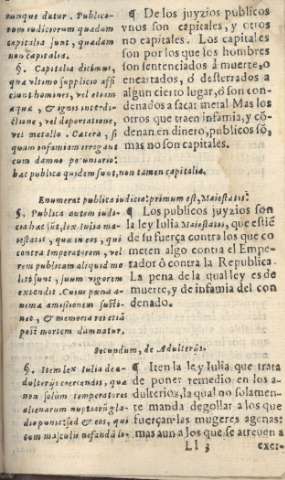 nunque datur. Publico-
rum iudiciorum quædam
capitalia sunt, quædam
non capitalia.
§. Capitalia dicimus,
quæ vltimo supplicio affi
ciunt homines, vel etiam
aquæ, & ignis interdi-
ctione, vel deportatione,
vel metallo. Cætera, si
quam infamiam irrogant
cum damno pecuniario:
hæc publica quidem sunt, non tamen capitalia.
¶ De los juyzios publicos
vnos son capitales, y otros
no capitales. Los capitales
son por los que los hombres
son sentenciados à muerte, o
encartados, ó desterrados a
algun cierto lugar, ó son con-
denados a sacar metal Mas los
otros que traen infamia, y cō-
denan en dinero, publicos sō,
mas no son capitales.
Enumerat publica iudicia: primum est, Maiestatis.
§. Publica autem iudi-
cia hæc sunt, lex Iulia ma-
iestatis, quæ in eos, qui
contra Imperatorem, vel
rem publicam aliquid mo
liti sunt, suum vigorem
extendit. Cuius pœna a-
nimæ amissionem susti-
net, & memoria rei etiā
post mortem damnatur.
¶ Los publicos juyzios son
la ley Iulia Maiestatis, que estiē
de su fuerça contra los que co
meten algo contra el Empe-
rador ó contra la Republica.
La pena de la qual ley es de
muerte, y de infamia del con
denado.
Secundum, de Adulterijs.
§. Item lex Iulia de a-
dulterijs coercendis, quæ
non solùm temeratores
alienarum nuptiarū gla-
dio punit, sed & eos, qui
cum masculis nefandā li-
¶ Iten la ley Iulia que trata
de poner remedio en los a-
dulterios, la qual no solamen-
te manda degollar a los que
fuerçan las mugeres agenas:
mas aun a los que se atreuen a
Ll 3 exer-